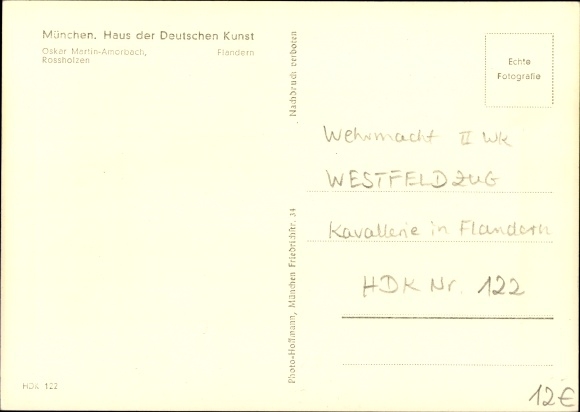 München. Haus der Deutschen Kunst
Oskar Martin-Amorbach, Flandern
Rossholzen
HDK 122
Nachdruck verboten
Photo-Hoffmann, München Friedrichstr. 34
Echte
Fotografie
Wehrmacht II Wk
WESTFELDZUG
Kavallerie in Flandern
HDK Nr. 122
12€